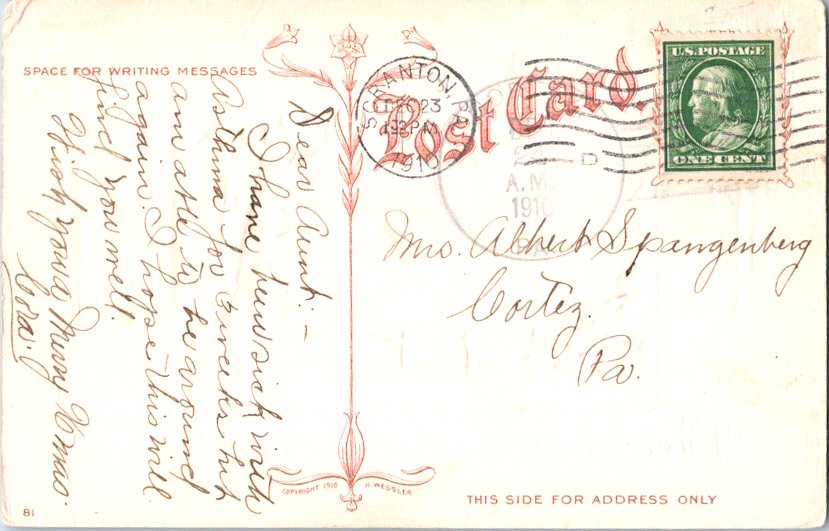 SPACE FOR WRITING MESSAGES
Post Card.
SCRANTON PA
DEC 23
PM
1910
A.M.
1910
U.S. POSTAGE
ONE CENT
Dear Aunt:—
I have been sick with
Asthma for 3 weeks but
am able to be around
again. I hope this will
find you well.
Wish you a Merry Xmas.
Cora.
Mrs. Albert Spangenberg
Cortez.
Pa.
COPYRIGHT 1910 H. WESSLER
THIS SIDE FOR ADDRESS ONLY
81